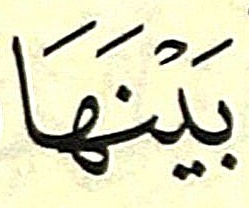 بَيْنَهَا